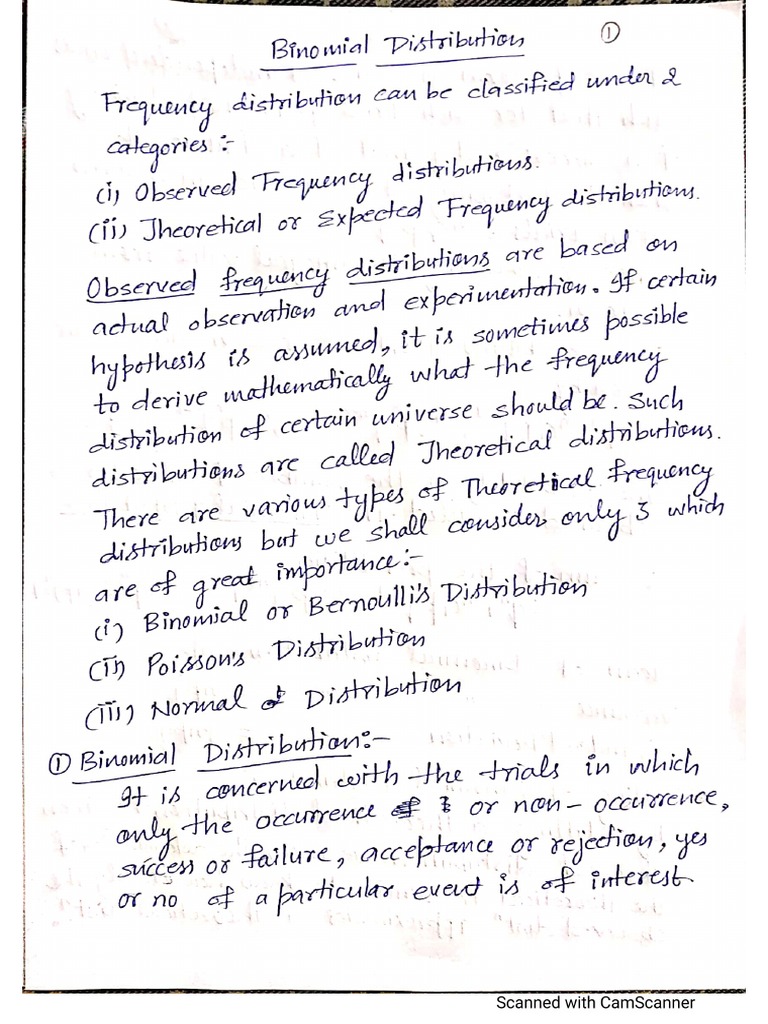 Binomial Distribution
①
Frequency distribution can be classified under 2
categories :-
(i) Observed Frequency distributions.
(ii) Theoretical or Expected Frequency distributions.
Observed frequency distributions are based on
actual observation and experimentation. If certain
hypothesis is assumed, it is sometimes possible
to derive mathematically what the frequency
distribution of certain universe should be. Such
distributions are called Theoretical distributions.
There are various types of Theoretical frequency
distributions but we shall consider only 3 which
are of great importance:-
(i) Binomial or Bernoulli's Distribution
(ii) Poisson's Distribution
(iii) Normal Distribution
① Binomial Distribution:-
It is concerned with the trials in which
only the occurrence or non-occurrence,
success or failure, acceptance or rejection, yes
or no of a particular event is of interest
Scanned with CamScanner